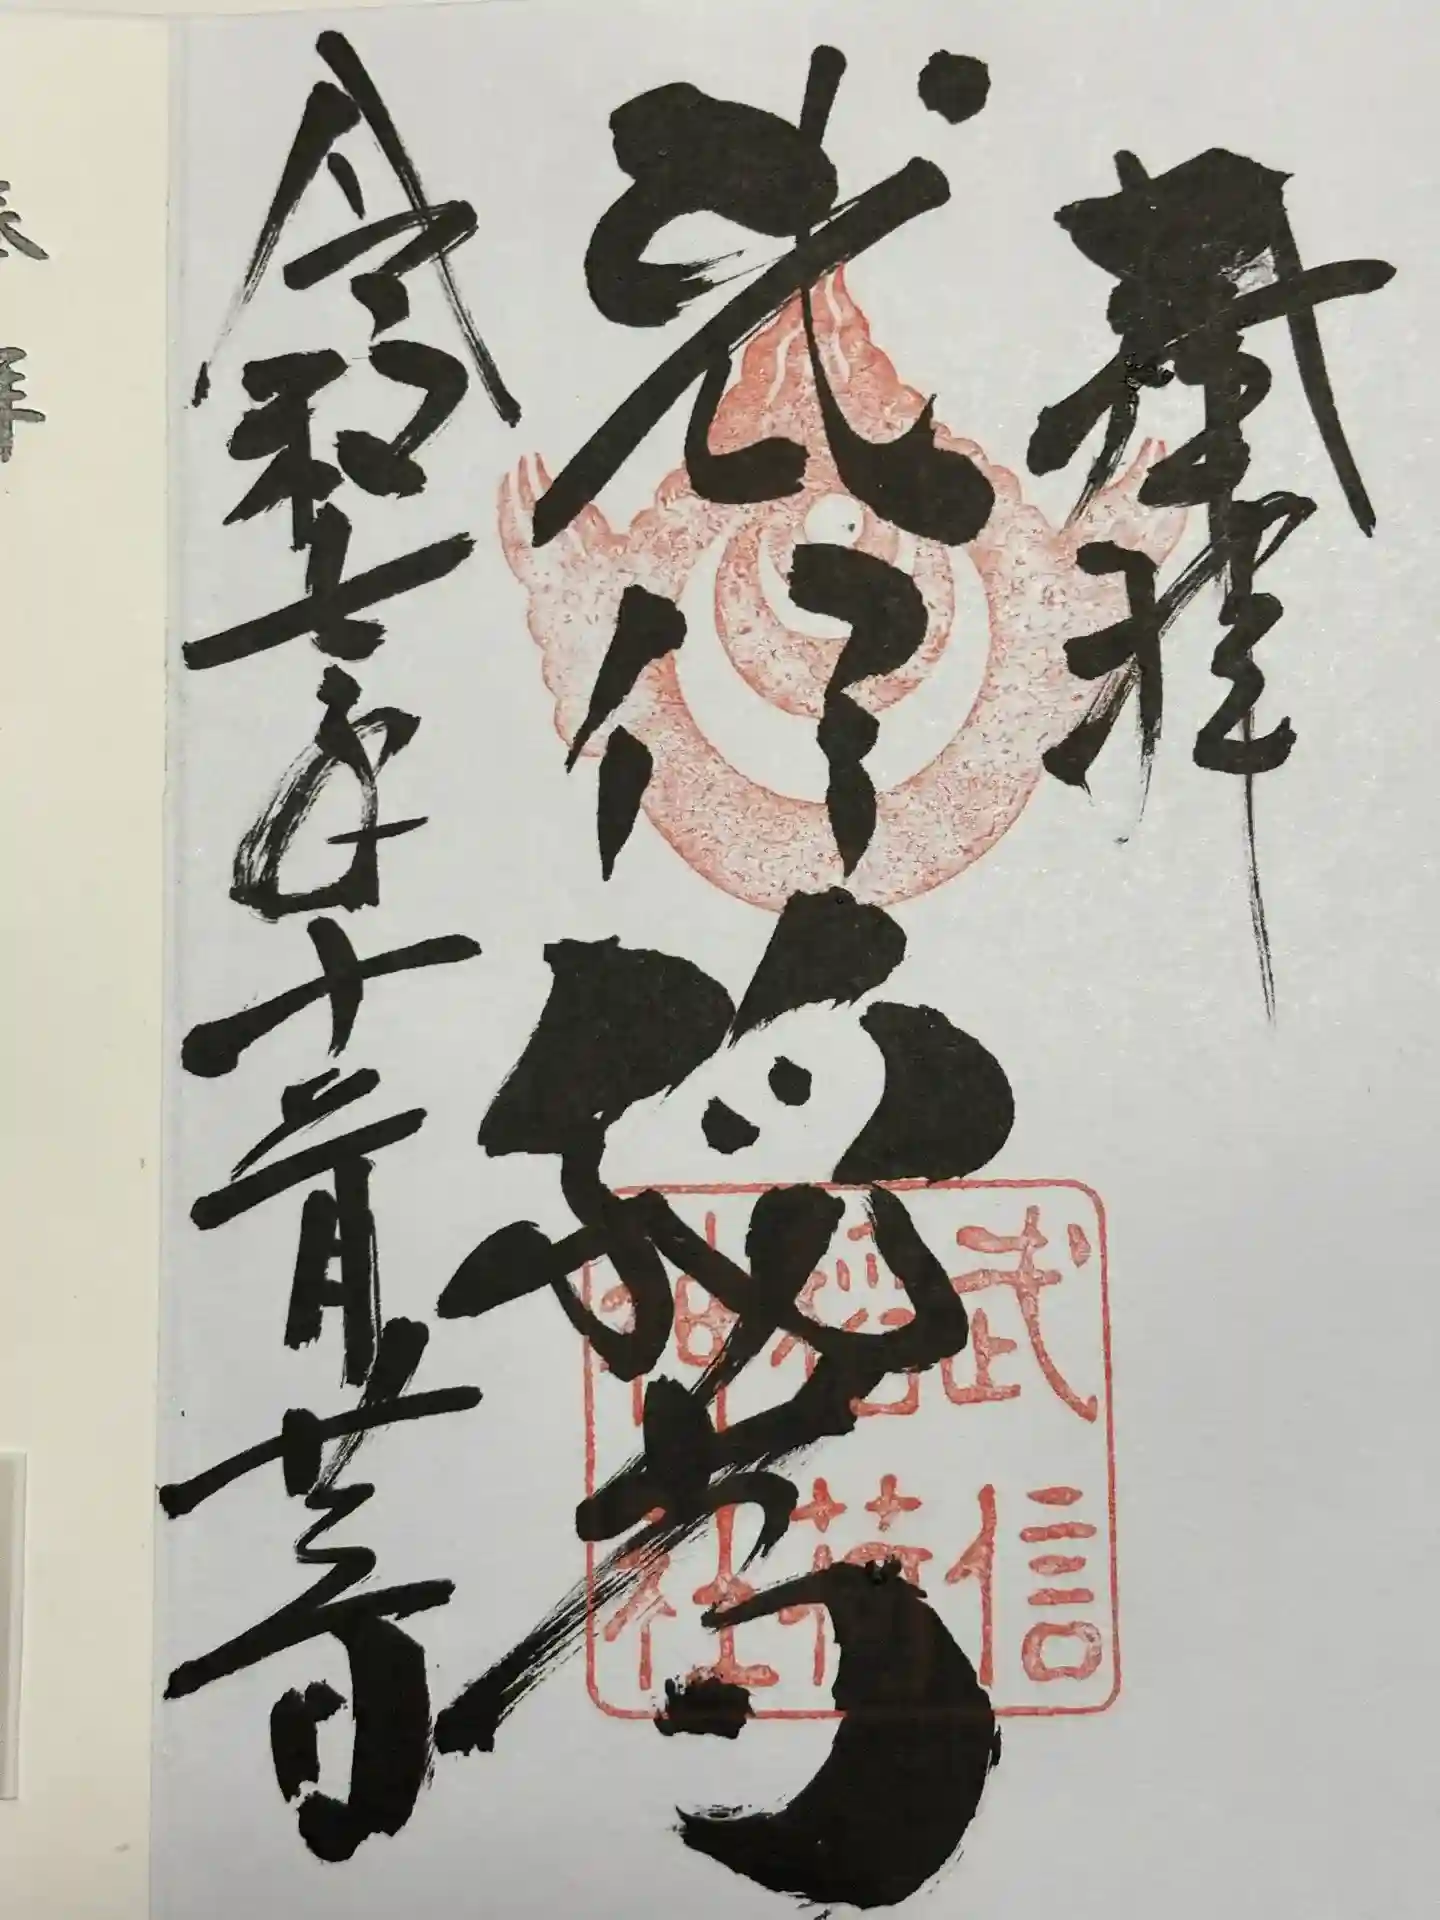 奉拝
武信稲荷
令和七年十二月廿日
武信
稲荷
神社